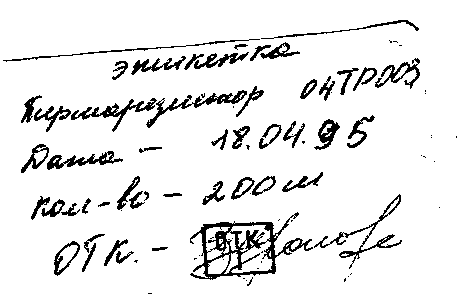 этикетка
Терморезистор 04ТР003
Дата - 18.04.95
кол-во - 200 м
ОТК. - ОТК